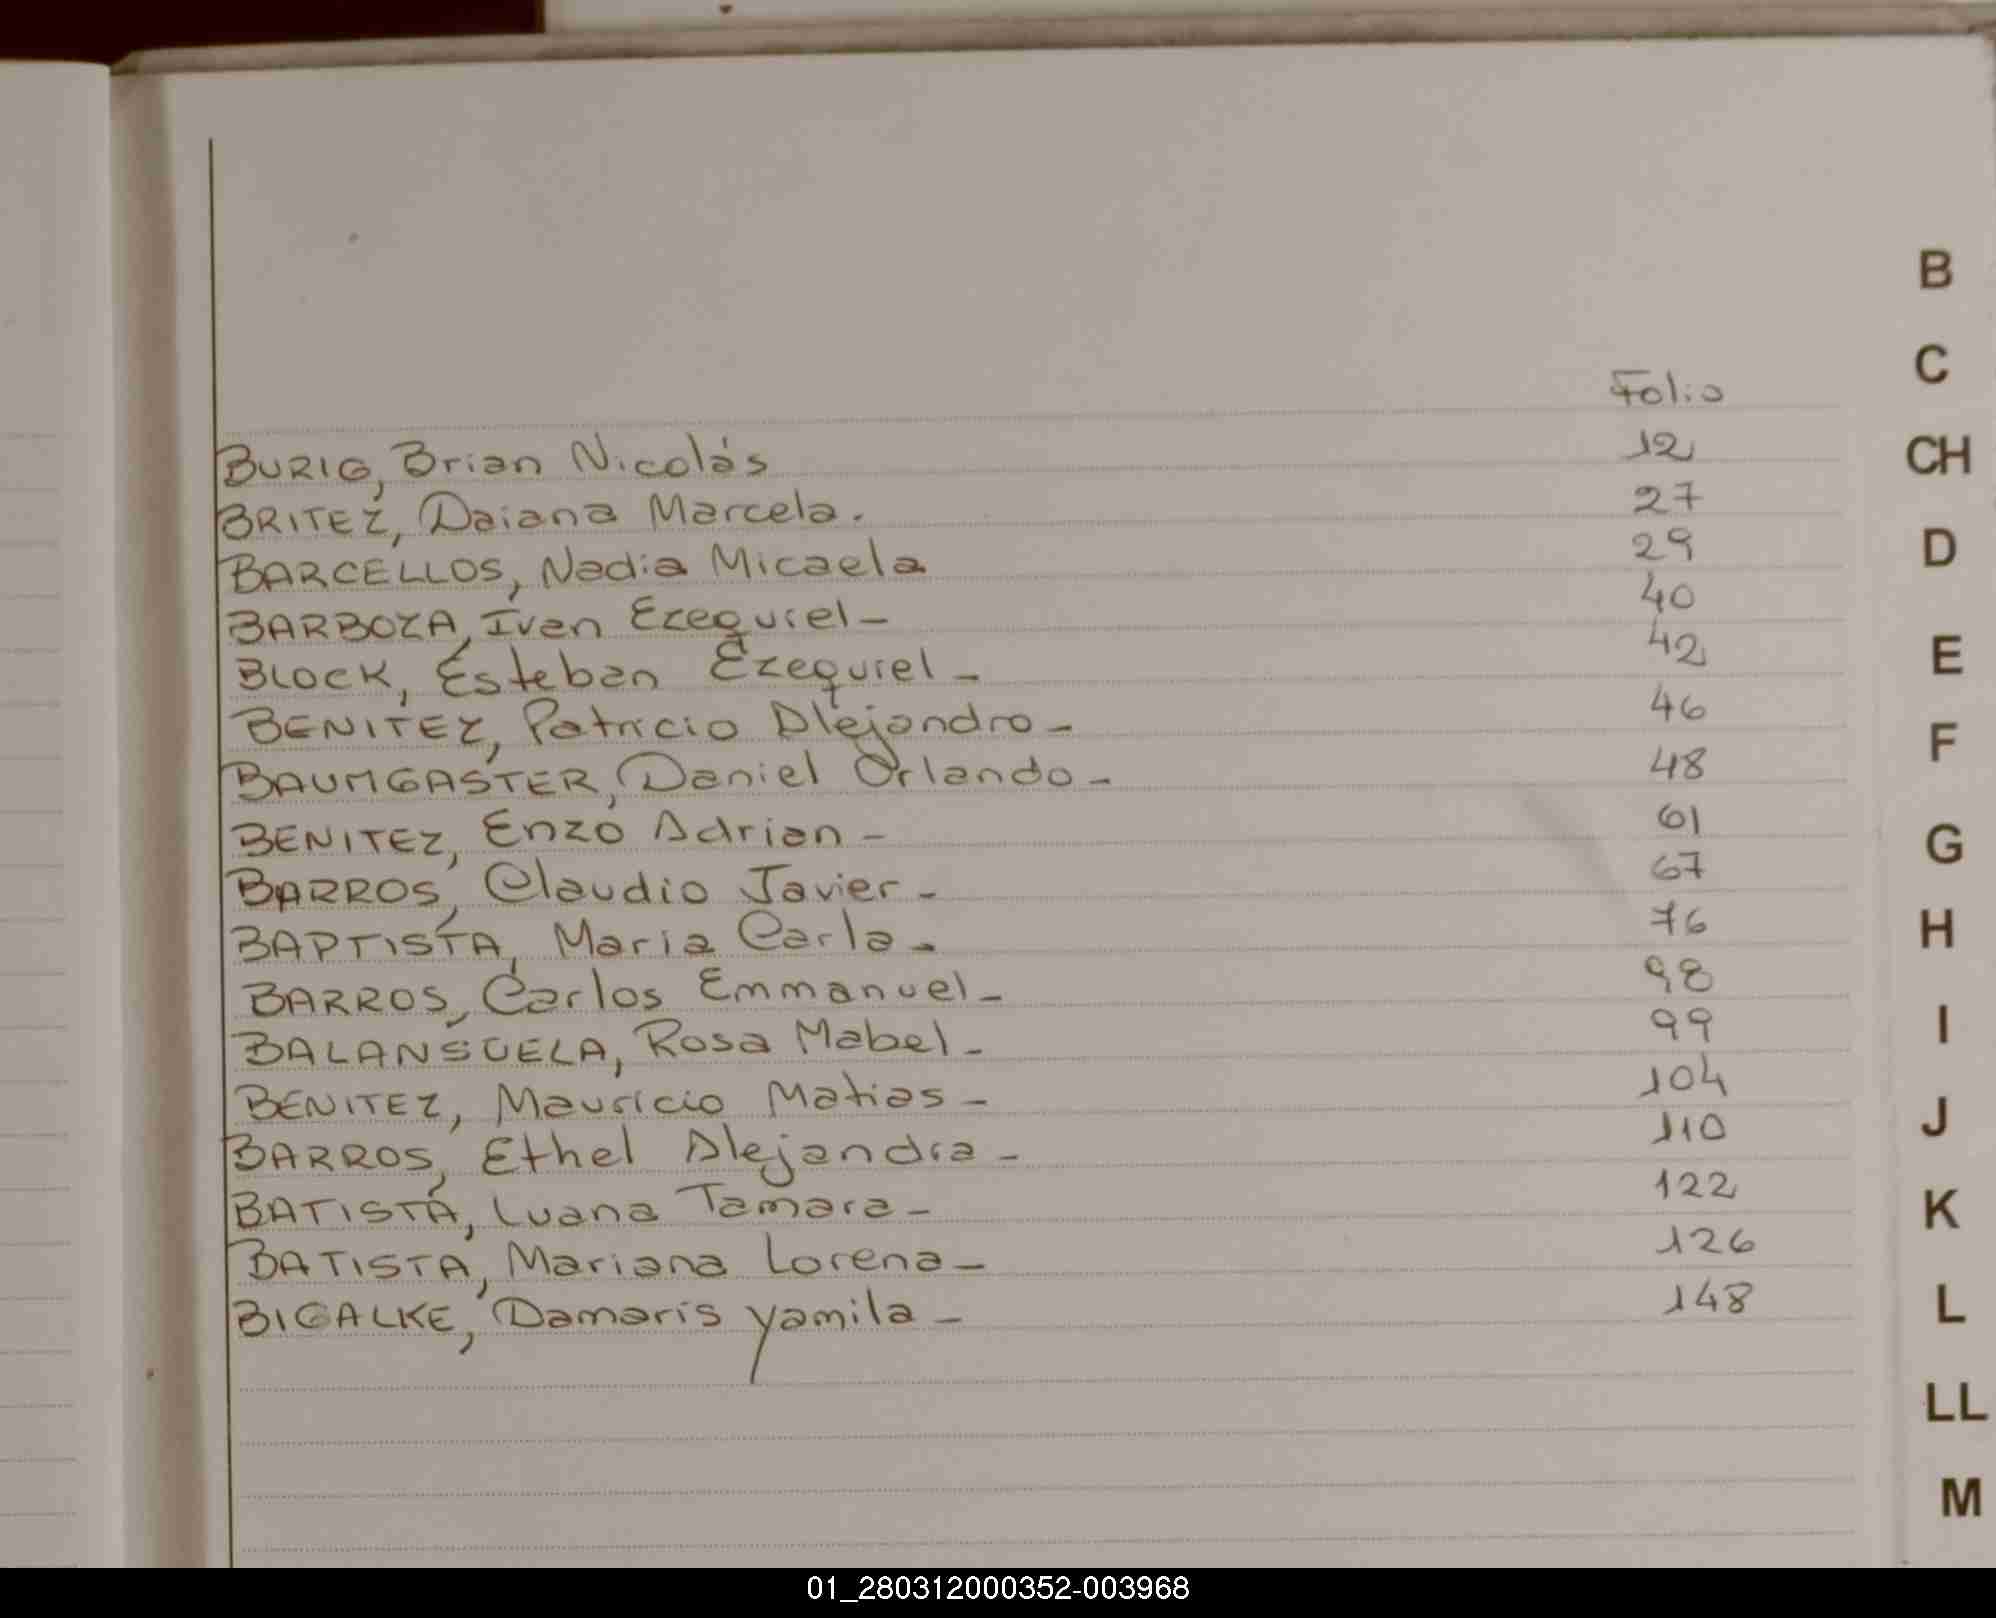 B
C
Folio
BURIG, Brian Nicolás 12
CH
BRITEZ, Daiana Marcela. 27
BARCELLOS, Nadia Micaela 29
D
BARBOZA, Ivan Ezequiel - 40
BLOCK, Esteban Ezequiel - 42
E
BENITEZ, Patricio Alejandro - 46
F
BAUMGASTER, Daniel Orlando - 48
BENITEZ, Enzo Adrian - 61
G
BARROS, Claudio Javier - 67
BAPTISTA, Maria Carla - 76
H
BARROS, Carlos Emmanuel - 98
BALANSUELA, Rosa Mabel - 99
I
BENITEZ, Mauricio Matias - 104
BARROS, Ethel Alejandra - 110
J
BATISTA, Luana Tamara - 122
K
BATISTA, Mariana Lorena - 126
BIGALKE, Damaris Yamila - 148
L
LL
M
01_280312000352-003968